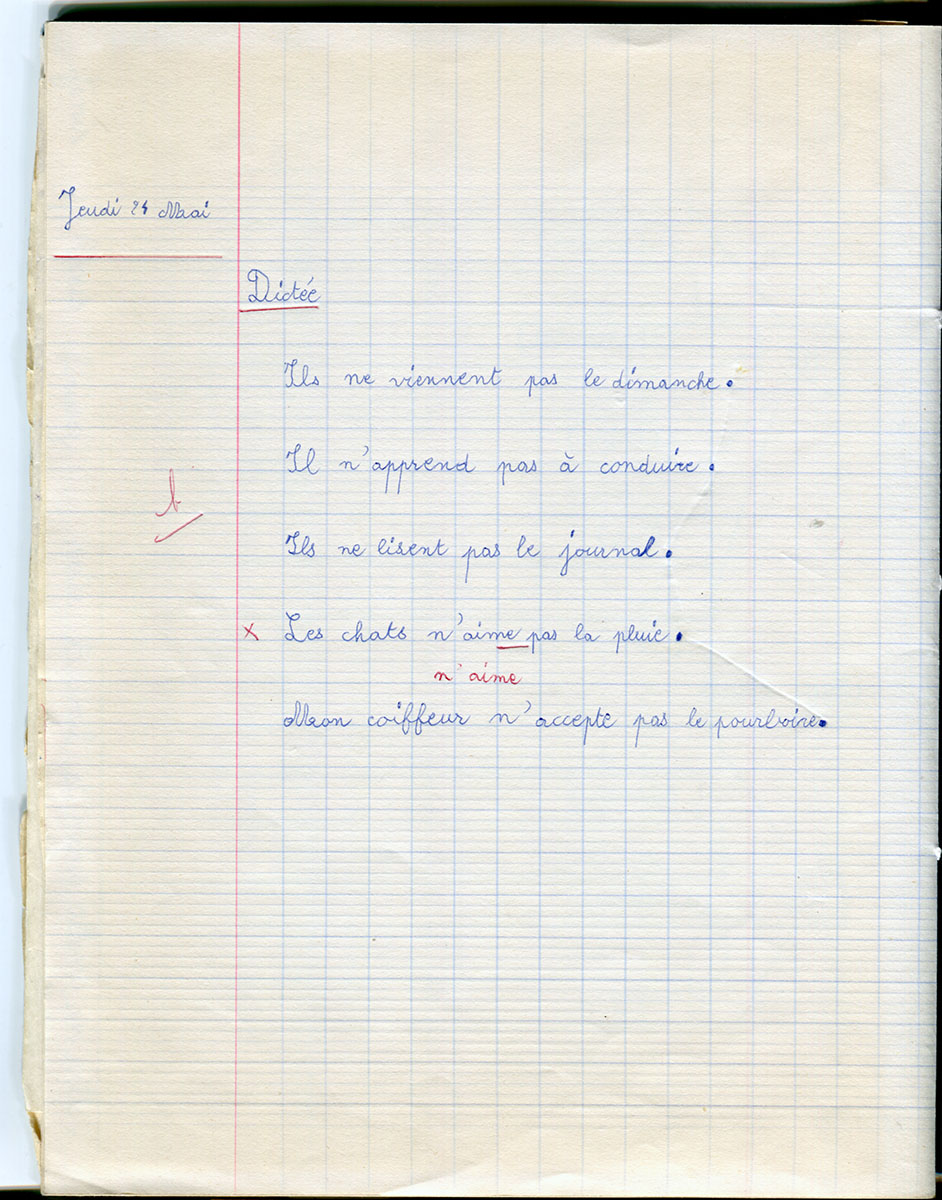 Jeudi 24 Mai
Dictée
Ils ne viennent pas le dimanche.
Il n'apprend pas à conduire.
Ils ne lisent pas le journal.
x Les chats n'aime pas la pluie.
n'aime
Mon coiffeur n'accepte pas le pourboire.